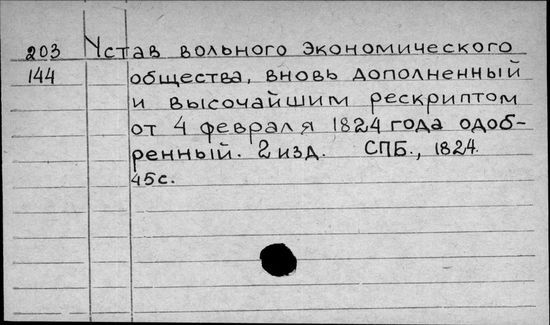 203 Устав вольного экономического
144 общества, вновь дополненный
и высочайшим рескриптом
от 4 февраля 1824 года одоб-
ренный. 2 изд. СПБ., 1824.
45с.